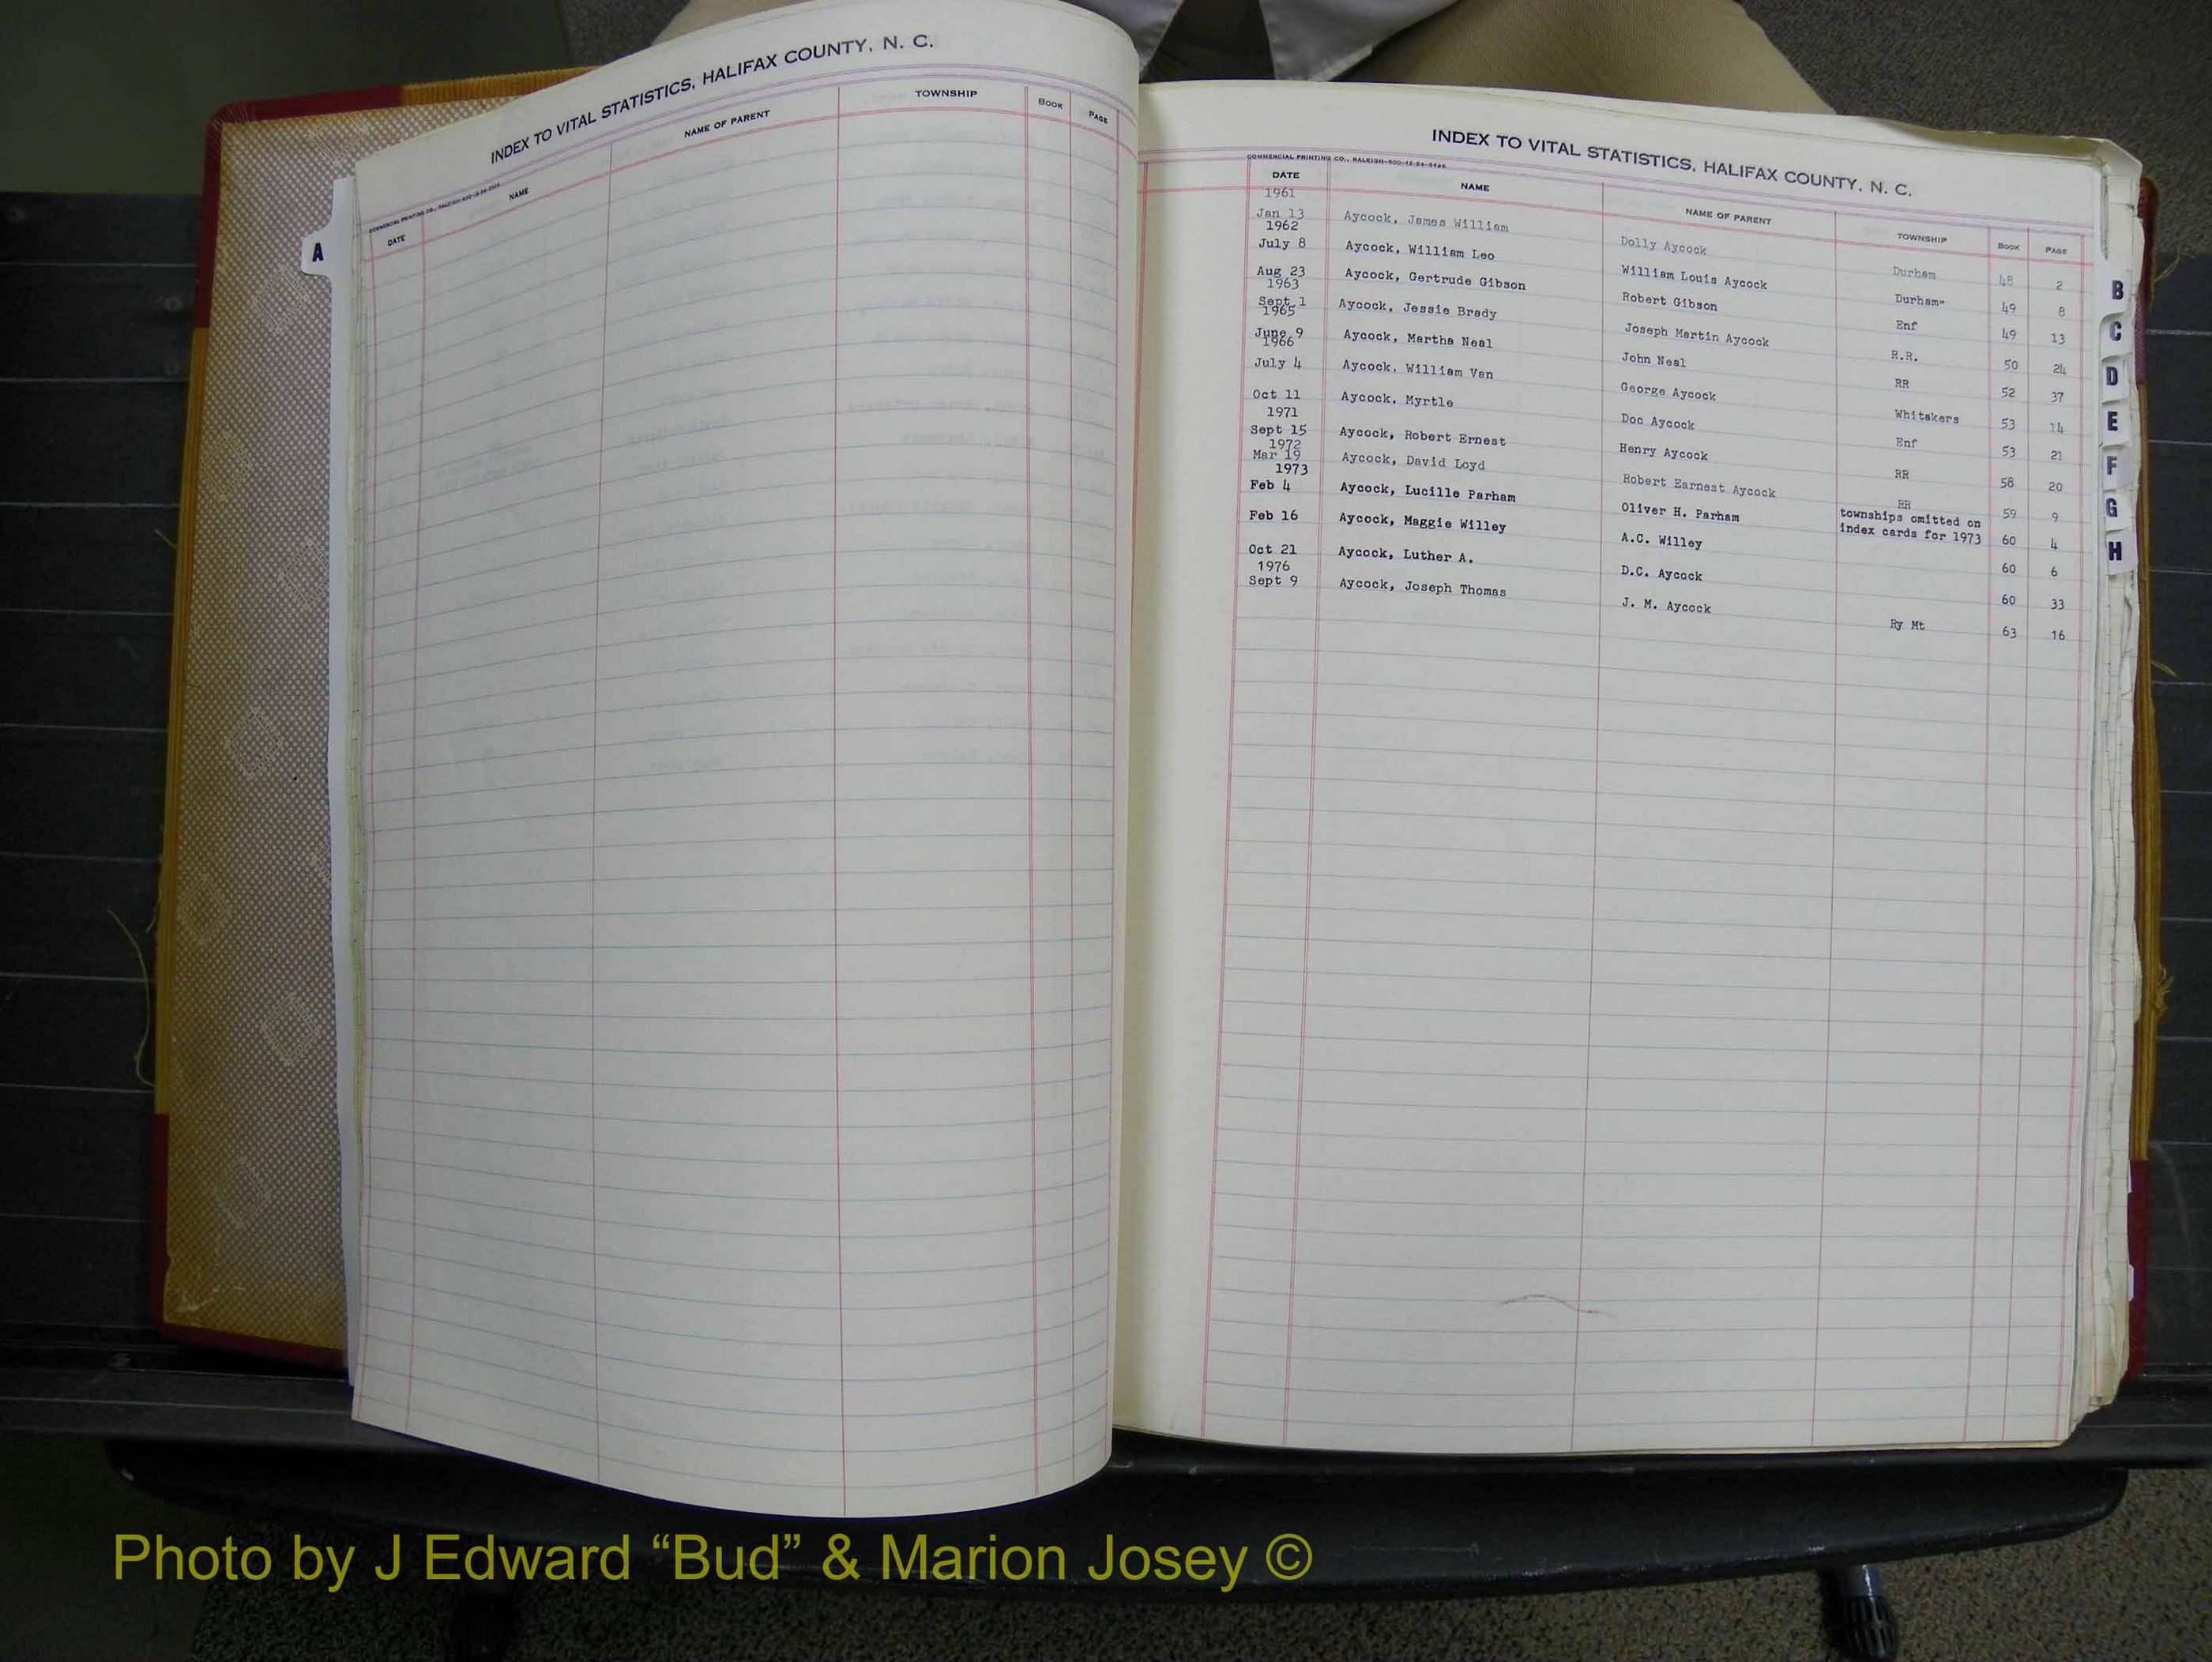 INDEX TO VITAL STATISTICS, HALIFAX COUNTY, N. C.
COMMERCIAL PRINTING CO., RALEIGH
DATE NAME NAME OF PARENT TOWNSHIP BOOK PAGE
A
INDEX TO VITAL STATISTICS, HALIFAX COUNTY, N. C.
COMMERCIAL PRINTING CO., RALEIGH
DATE NAME NAME OF PARENT TOWNSHIP BOOK PAGE
1961
Jan 13 Aycock, James William Dolly Aycock Durham 48 2
1962
July 8 Aycock, William Leo William Louis Aycock Durham 49 8
Aug 23 Aycock, Gertrude Gibson Robert Gibson Enf 49 13
1963
Sept 1 Aycock, Jessie Brady Joseph Martin Aycock R.R. 50 24
1965
June 9 Aycock, Martha Neal John Neal RR 52 37
1966
July 4 Aycock, William Van George Aycock Whitakers 53 14
Oct 11 Aycock, Myrtle Doc Aycock Enf 53 21
1971
Sept 15 Aycock, Robert Ernest Henry Aycock RR 58 20
1972
Mar 19 Aycock, David Loyd Robert Earnest Aycock RR 59 9
1973
Feb 4 Aycock, Lucille Parham Oliver H. Parham townships omitted on index cards for 1973 60 4
Feb 16 Aycock, Maggie Willey A.C. Willey 60 6
Oct 21 Aycock, Luther A. D.C. Aycock 60 33
1976
Sept 9 Aycock, Joseph Thomas J. M. Aycock Ry Mt 63 16
B
C
D
E
F
G
H
Photo by J Edward “Bud” & Marion Josey ©